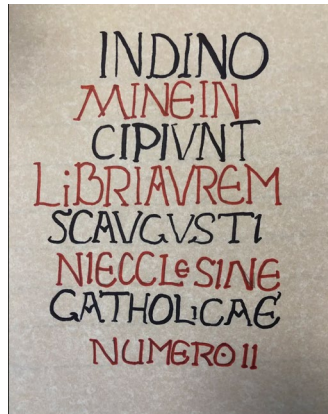 INDINO
MINEIN
CIPIVNT
LiBRIAVREM
SCAVGVSTI
NIECCLeSINE
CATHOLiCAE
NUMERO II